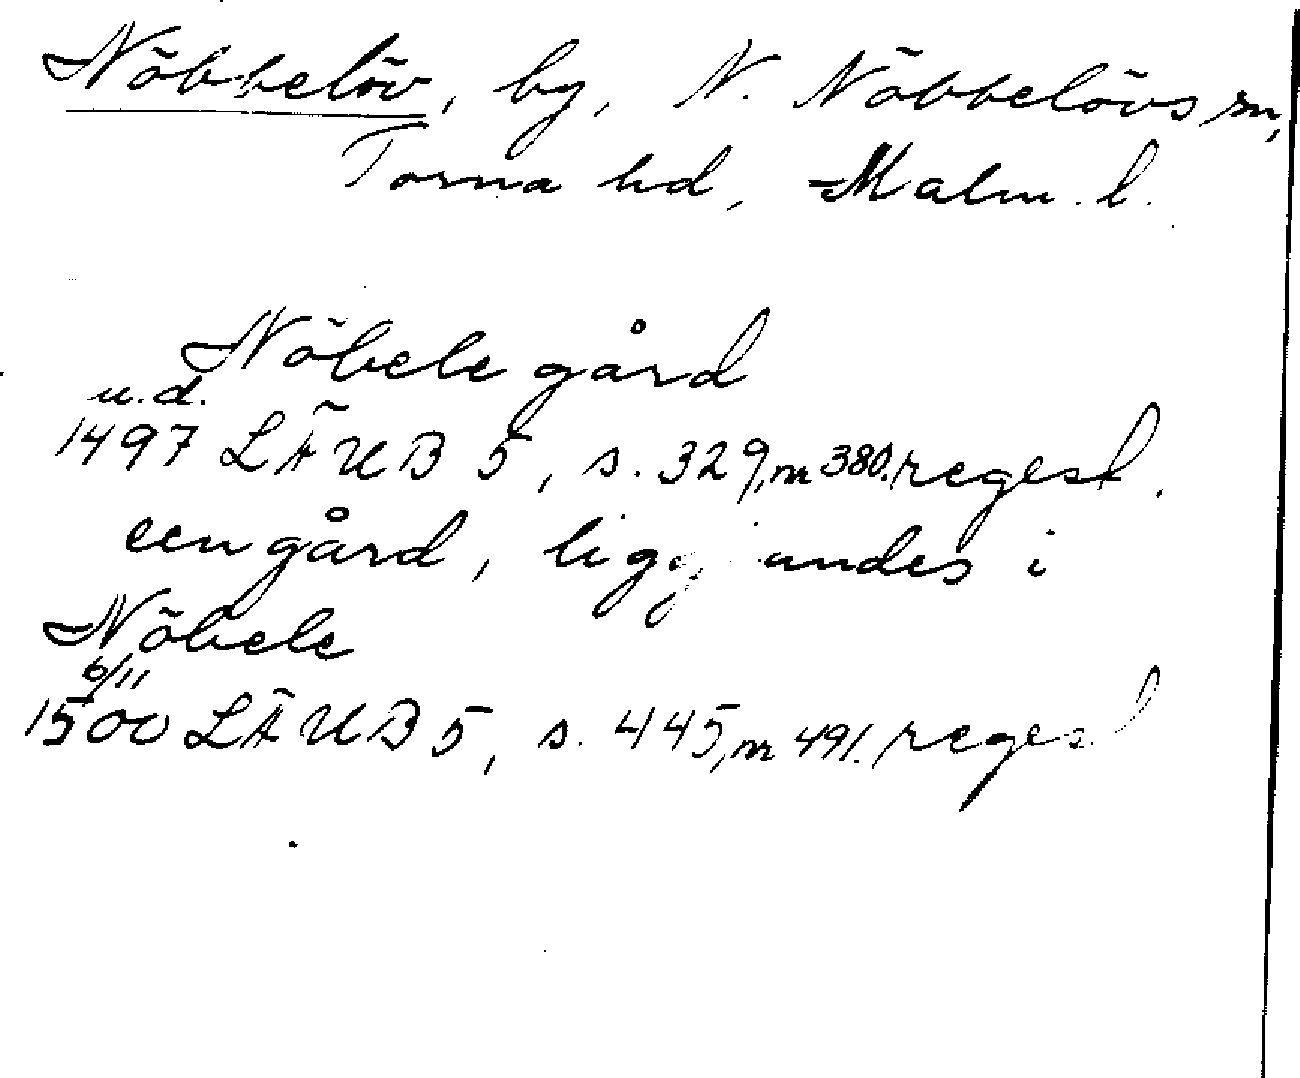 Nöbbelöv, by, N. Nöbbelövs sn,
Torna hd, Malm. l.
Nöbele gård
u.d.
1497 LÄUB 5, s. 329, nr 380. regest.
een gård, liggiandes i
Nöbele
6/11
1500 LÄUB 5, s. 445, nr 491. regest